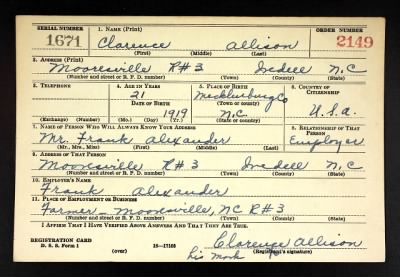 SERIAL NUMBER 1. NAME (Print) ORDER NUMBER
1671 Clarence Allison 2149
(First) (Middle) (Last)
2. ADDRESS (Print)
Mooresville R#3 Iredell N.C
(Number and street or R. F. D. number) (Town) (County) (State)
3. TELEPHONE 4. AGE IN YEARS 5. PLACE OF BIRTH 6. COUNTRY OF CITIZENSHIP
21 Mecklenburg Co
DATE OF BIRTH (Town or county)
1919 N.C. U.S.a.
(Exchange) (Number) (Mo.) (Day) (Yr.) (State or country)
7. NAME OF PERSON WHO WILL ALWAYS KNOW YOUR ADDRESS 8. RELATIONSHIP OF THAT PERSON
Mr. Frank Alexander Employer
(Mr., Mrs., Miss) (First) (Middle) (Last)
9. ADDRESS OF THAT PERSON
Mooresville R#3 Iredell N.C
(Number and street or R. F. D. number) (Town) (County) (State)
10. EMPLOYER'S NAME
Frank Alexander
11. PLACE OF EMPLOYMENT OR BUSINESS
Farmer - Mooresville, NC R#3
(Number and street or R. F. D. number) (Town) (County) (State)
I AFFIRM THAT I HAVE VERIFIED ABOVE ANSWERS AND THAT THEY ARE TRUE.
REGISTRATION CARD
D. S. S. Form 1 (over) 16—17105 Clarence Allison
(Registrant's signature)
his mark